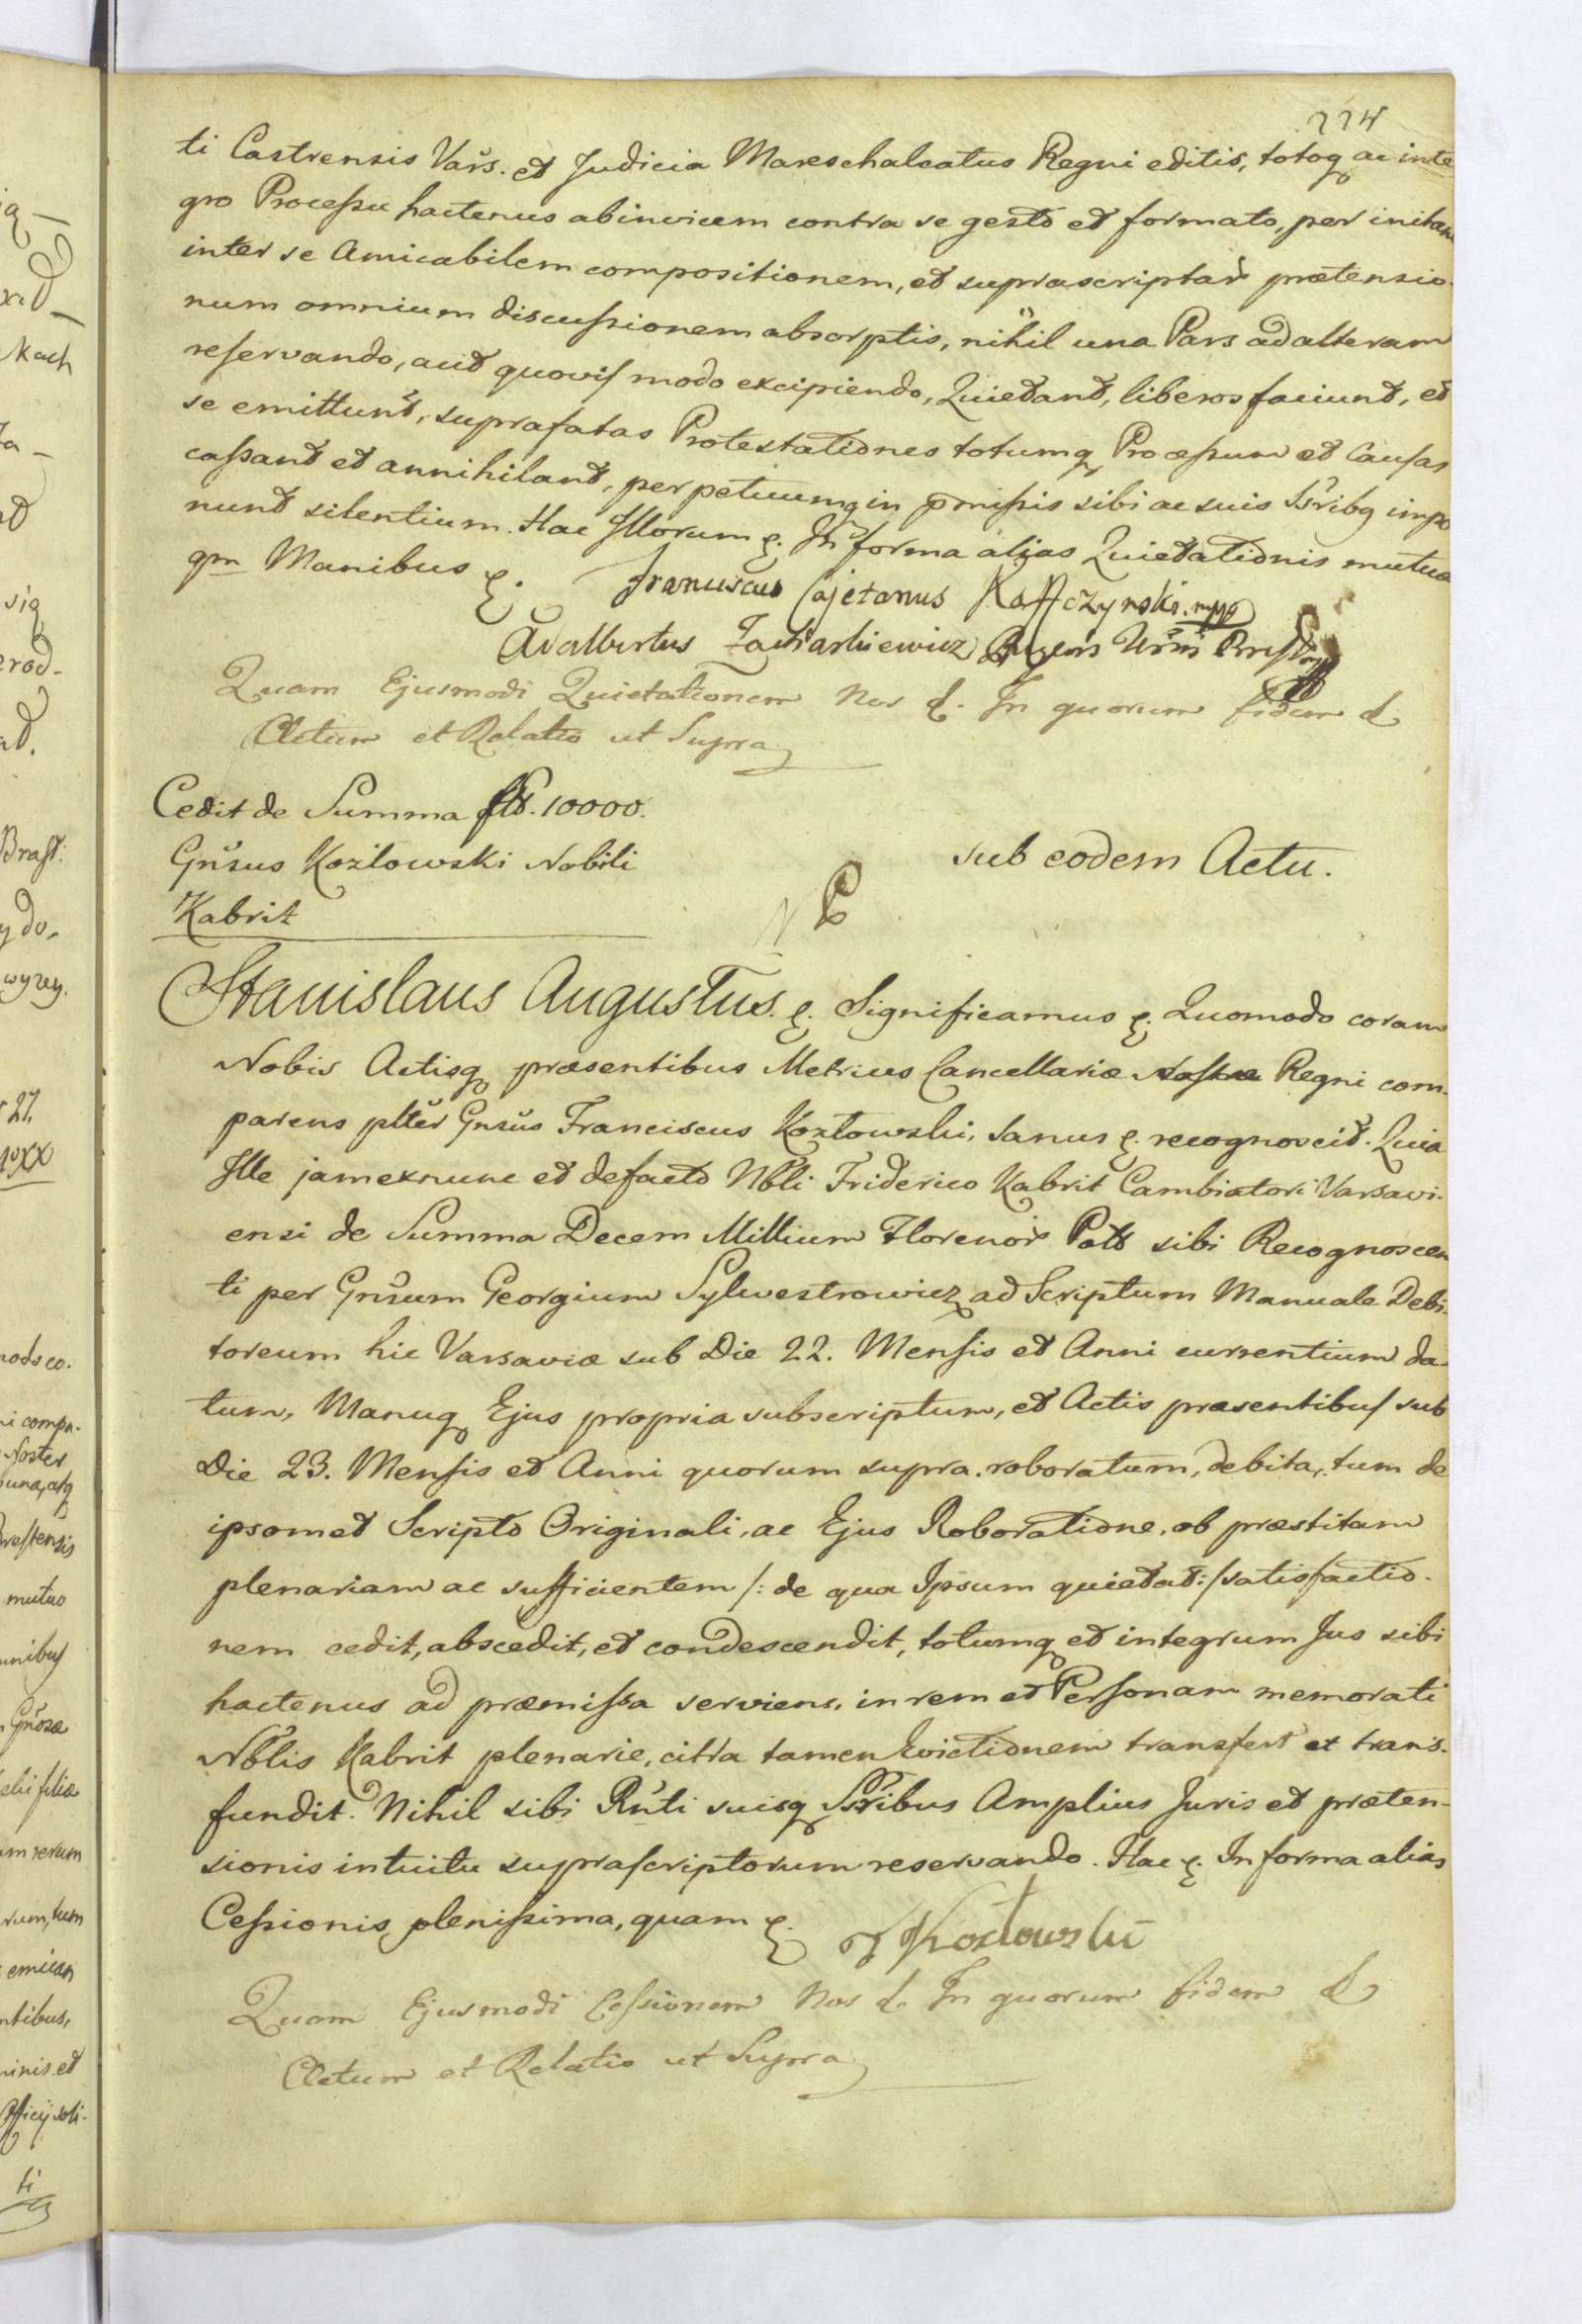 224
ti Castrensis Varš. et Judicia Mareschalcatus Regni editis, totoq ac inte
gro Processu hactenus abinvicem contra se gesto et formato, per initam
inter se Amicabilem compositionem, et suprascriptar prætensio-
num omnium discussionem absorptis, nihil una Pars ad alteram
reservando, aut quovis modo excipiendo, Quietant, liberos faciunt, et
se emittunt, suprafatas Protestationes totumq Processum et Causas
cassant et annihilant, perpetuumq in pmissis sibi ac suis Ssribq impo
nunt silentium. Hac Illorum &. In forma alias Quietationis mutuæ
qm Manibus &. Franciscus Cajetanus mpp
Adalbertus Zacharkiewicz
Quam Ejusmodi Quietationem Nos &. In quorum fidem &
Actum et Relatio ut Supra
Cedit de Summa fl. 10000.
Gnsus Kozłowski Nobili
Kabrit
sub eodem Actu.
Stanislaus Augustus. &. Significamus &. Quomodo coram
Nobis Actisq præsentibus Metrices Cancellariæ Regni com-
parens pltër Gnsus Franciscus Kozłowski, sanus &. recognovit. Quia
Ille jam exnunc et defacto Nbli Friderico Kabrit Cambiatori Varsavi-
ensi de Summa Decem Millium Florenor Polo sibi Recognoscen
ti per Gnsum Georgium Sylwestrowicz ad Scriptum Manuale Debi-
toreum hic Varsaviæ sub Die 22. Mensis et Anni currentium da-
tum, Manuq Ejus propria subscriptum, et Actis præsentibus sub
Die 23. Mensis et Anni quorum supra roboratum, debita, tum de
ipsomet Scripto Originali, ac Ejus Roboratione, ob præstitam
plenariam ac sufficientem /: de qua Ipsum quietat :/ satisfactio-
nem cedit, abscedit, et condescendit, totumq et integrum Jus sibi
hactenus ad præmissa serviens, in rem et Personam memorati
Nblis Kabrit plenarie, citra tamen Evictionem transfert et trans-
fundit. Nihil sibi Rnti suisq Ssribus Amplius Juris et præten-
sionis intuitu suprascriptorum reservando. Hac &. In forma alias
Cessionis plenissima, quam &. F Kozłowski
Quam Ejusmodi Cessionem Nos &. In quorum fidem &
Actum et Relatio ut Supra